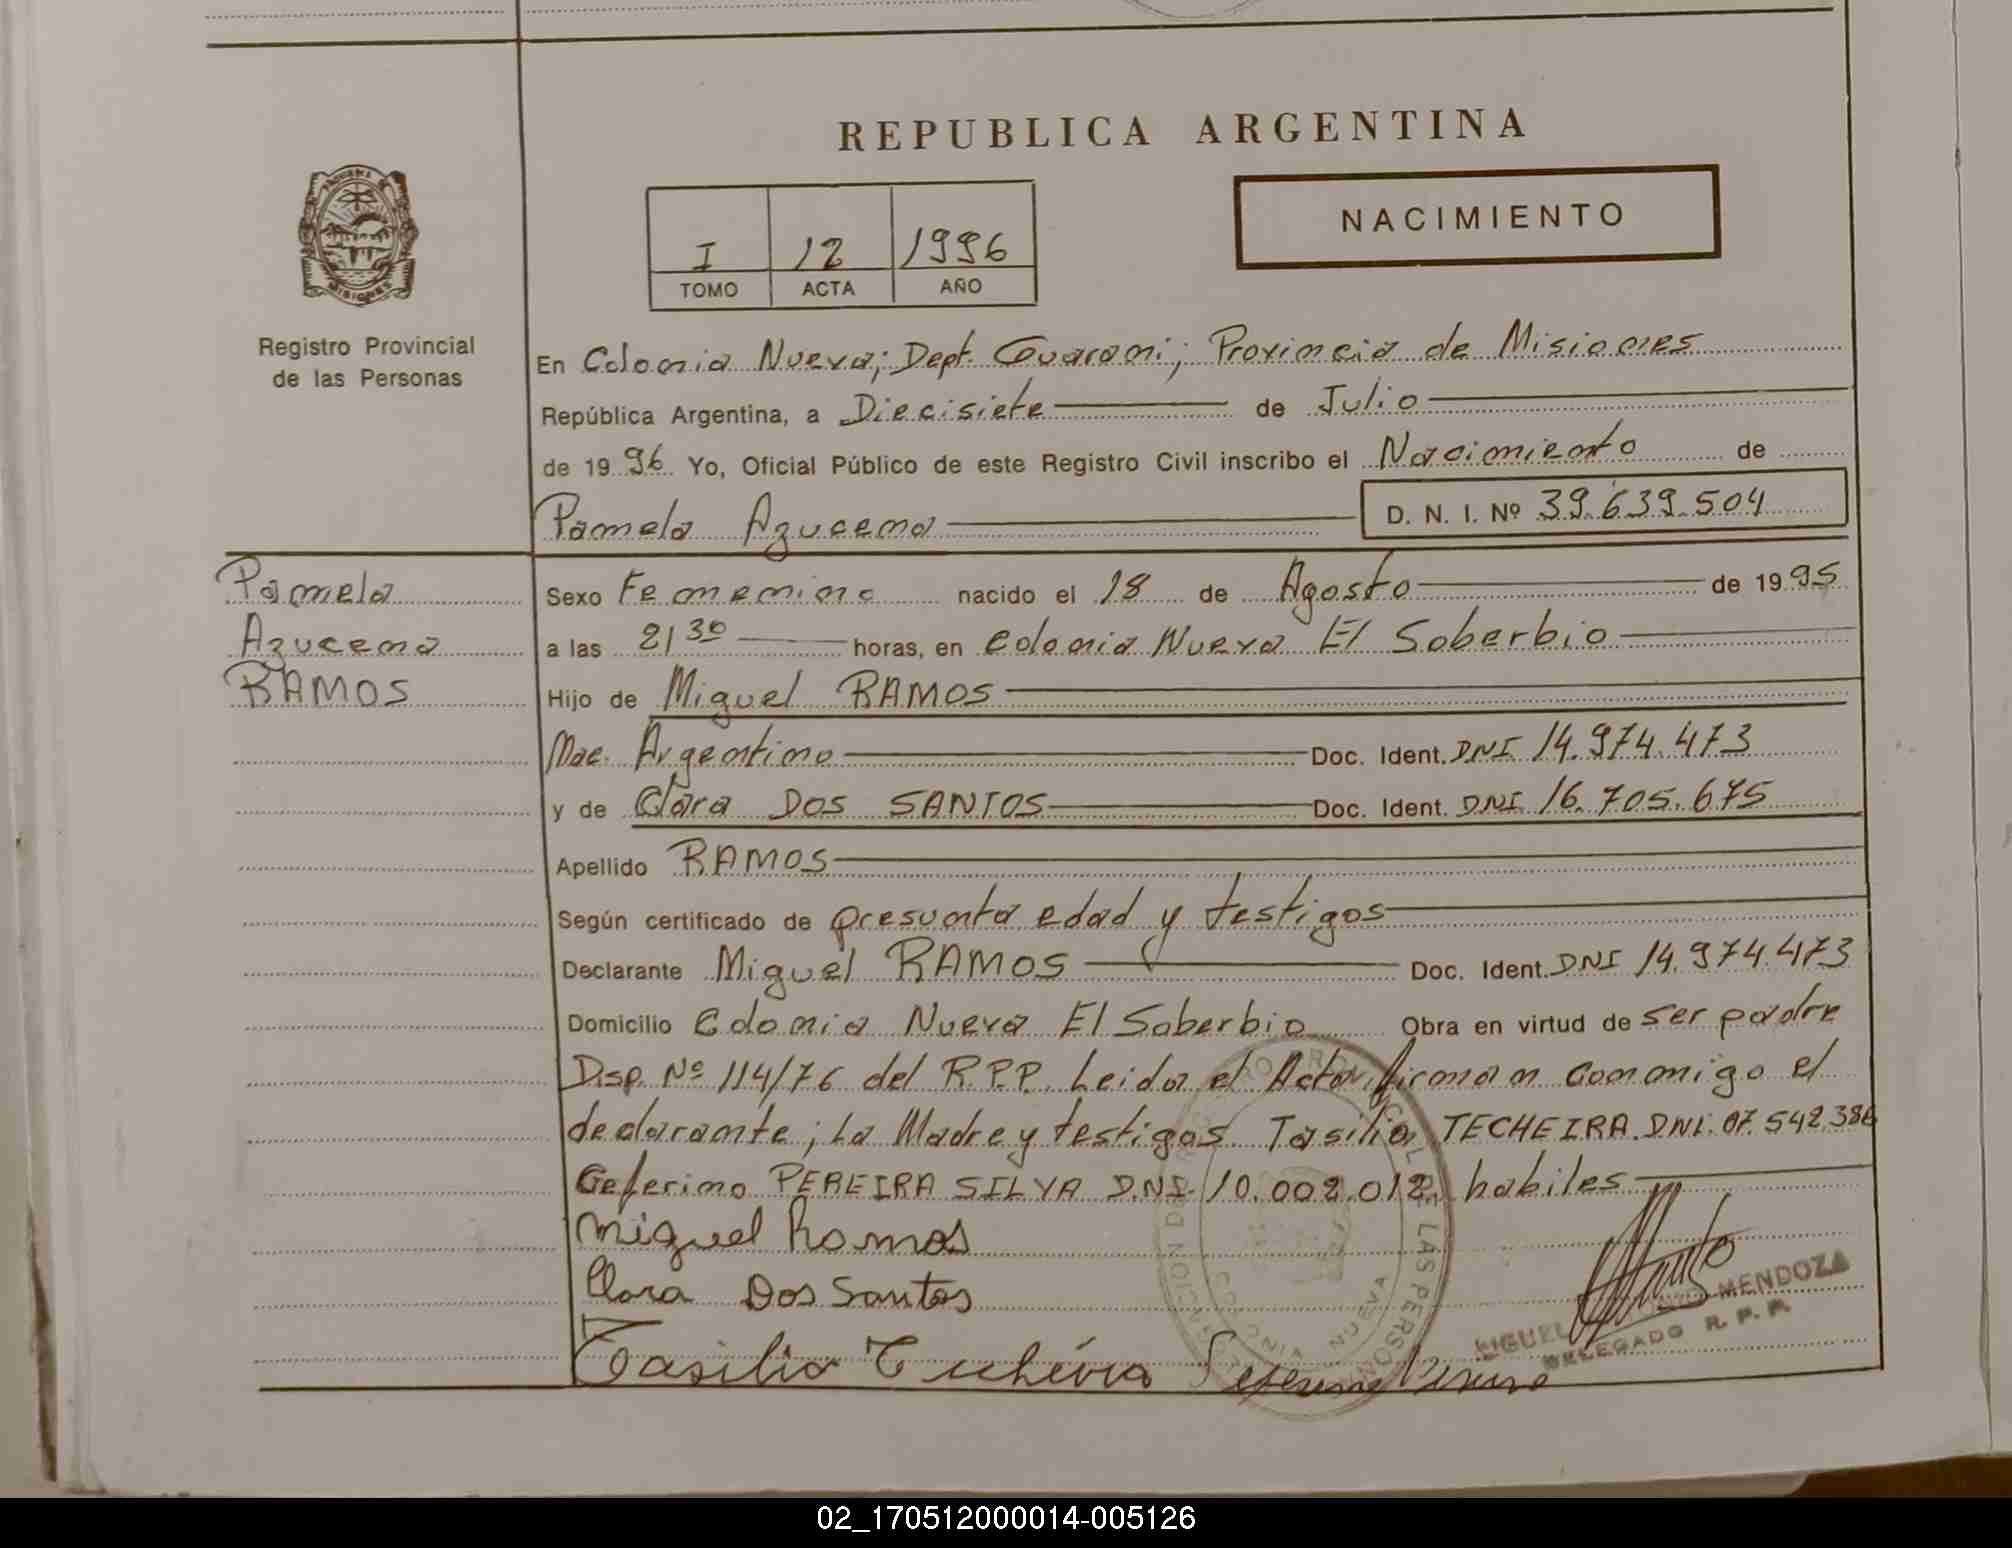 REPUBLICA ARGENTINA
NACIMIENTO
I 12 1996
TOMO ACTA AÑO
MISIONES
Registro Provincial
de las Personas
En Colonia Nueva; Dept. Guarani; Provincia de Misiones
República Argentina, a Diecisiete de Julio
de 1996 Yo, Oficial Público de este Registro Civil inscribo el Nacimiento de
Pamela Azucena D. N. I. Nº 39.639.504
Pamela
Azucena
RAMOS
Sexo Femenino nacido el 18 de Agosto de 1995
a las 21 30 horas, en Colonia Nueva El Soberbio
Hijo de Miguel RAMOS
Nac. Argentino Doc. Ident. DNI 14.974.473
y de Clara DOS SANTOS Doc. Ident. DNI 16.705.675
Apellido RAMOS
Según certificado de presunta edad y testigos
Declarante Miguel RAMOS Doc. Ident. DNI 14.974.473
Domicilio Colonia Nueva El Soberbio Obra en virtud de ser padre
Disp. Nº 114/76 del R.P.P. Leida el Acta, firman conmigo el
declarante; La Madre y testigos Tasilio TECHEIRA. DNI. 07.542.386
Ceferino PEREIRA SILVA D.NI. 10.002.012 habiles
Miguel Ramos
Clara Dos Santos
MIGUEL MENDOZA
DELEGADO R. P. P.
Tasilio Techeira Seferino
DE LAS PERSONAS
COLONIA NUEVA
02_170512000014-005126